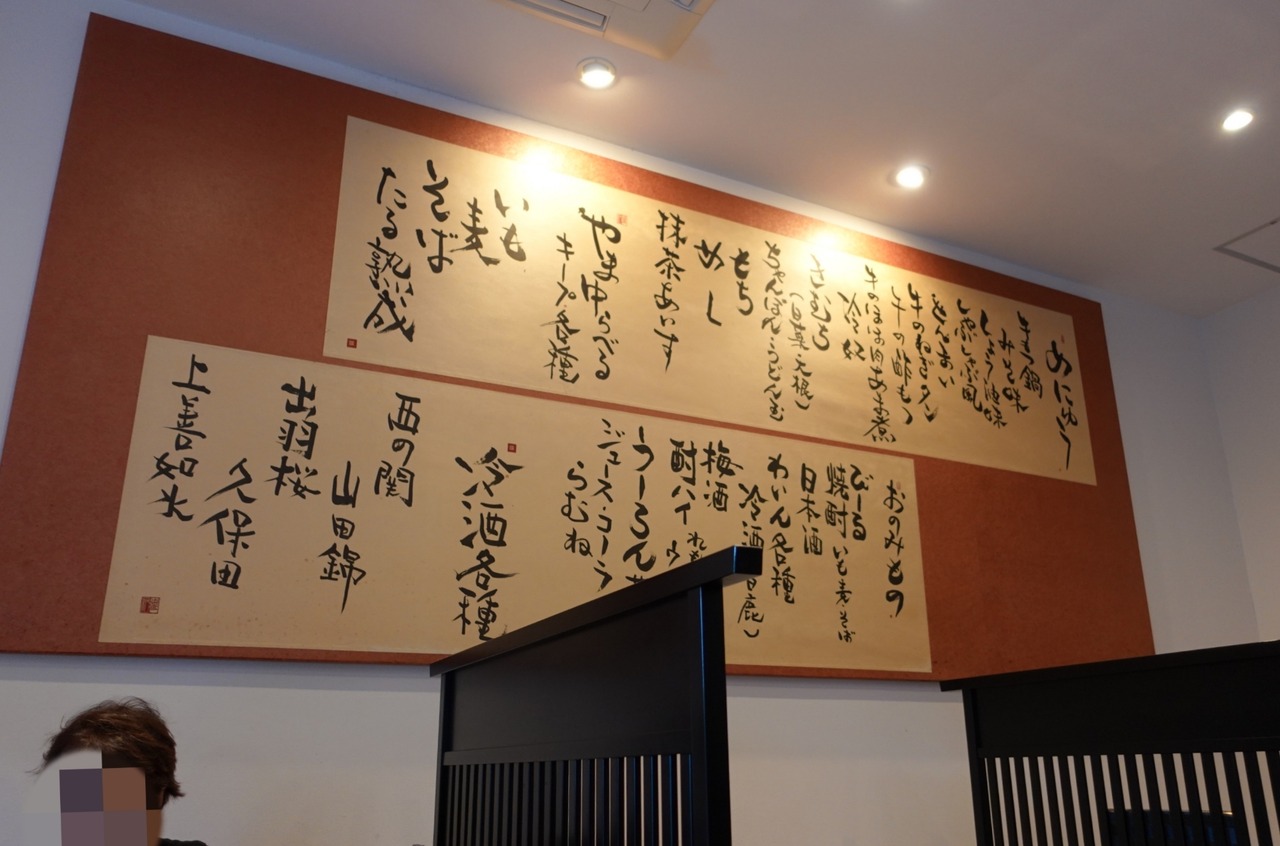 めにゅう
もつ鍋
みそ味
しょうゆ味
しゃぶしゃぶ風
牛のねぎタン
牛の酢もつ
牛のほほ肉あま煮
冷奴
きむち
(白菜・大根)
ちゃんぽん・うどん玉
もち
めし
抹茶あいす
やまゆらべる
キープ各種
いも
麦
そば
たる熟成
おのみもの
びーる
焼酎 いも・麦・そば
日本酒
わいん各種
冷酒
梅酒
酎ハイ
うーろん
ジュース・コーラ
らむね
冷酒各種
西の関
山田錦
出羽桜
久保田
上善如水